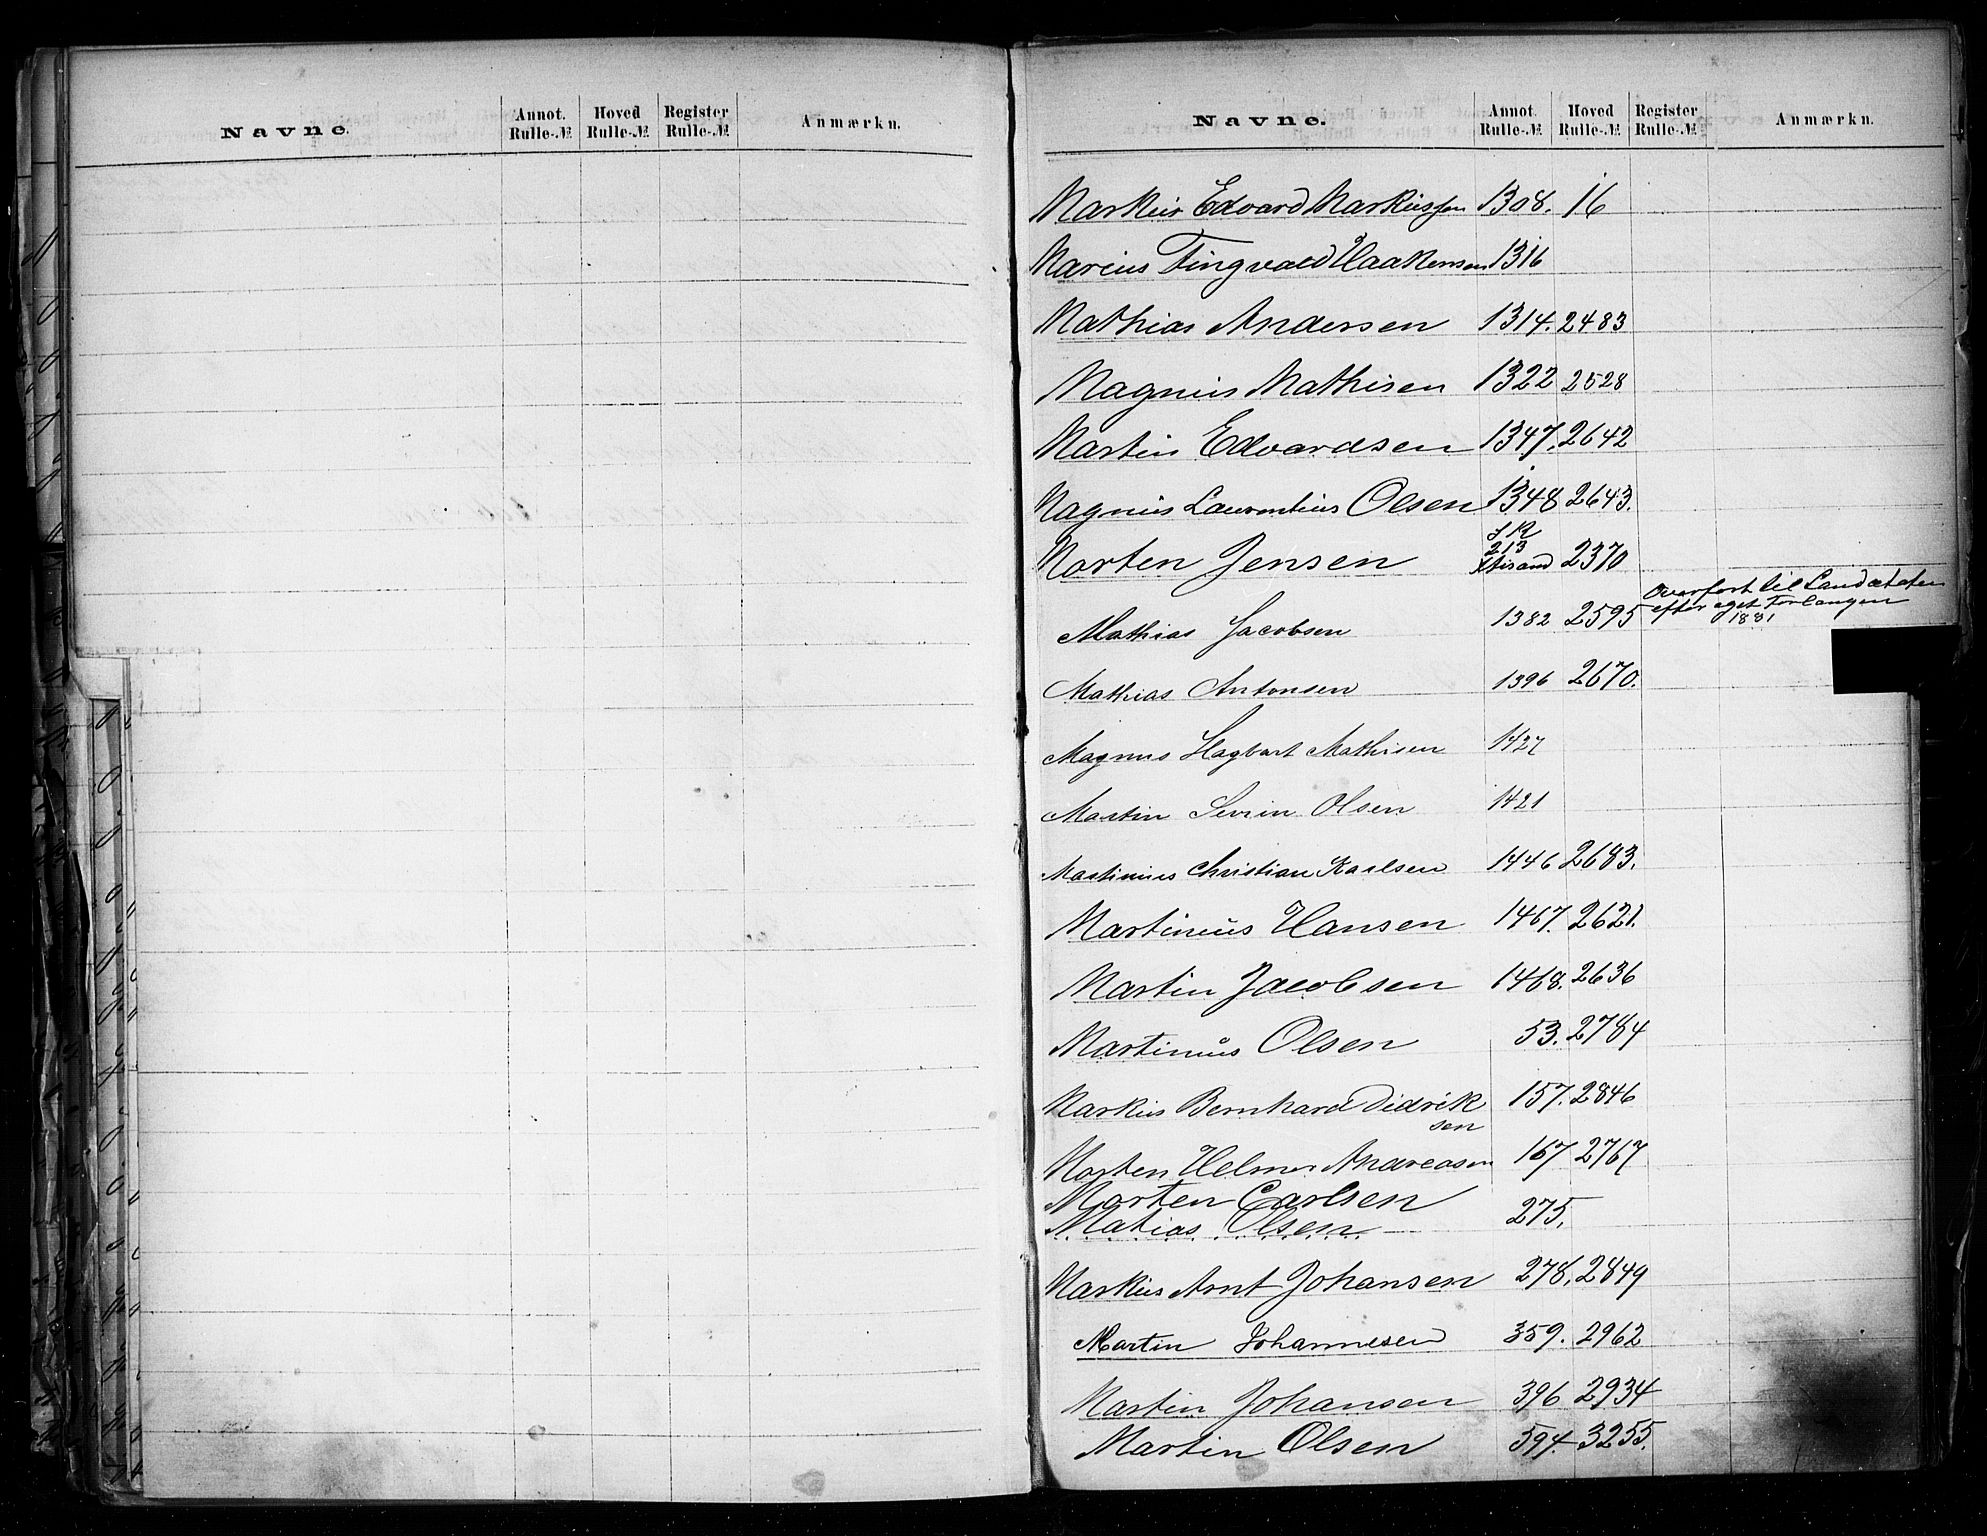 Navne. Annot. Rulle-№ Hoved Rulle-№ Register Rulle-№ Anmærkn.
Navne. Annot. Rulle-№ Hoved Rulle-№ Register Rulle-№ Anmærkn.
Markus Edvard Markussen 1308. 16
Marius Tingvald Haakensen 1316
Mathias Andersen 1314. 2483
Magnus Mathisen 1322 2528
Martin Edvardsen 1347. 2642
Magnus Laurentius Olsen 1348 2643.
213
Morten Jensen 2370
Overført til Landetaten
efter eget Forlangen
1881
Mathias Jacobsen 1382 2595
Mathias Antonsen 1396 2670.
Magnus Hagbart Mathisen 1427
Martin Sevrin Olsen 1421
Martinius Christian Karlsen 1446 2683.
Martinius Hansen 1467. 2621.
Martin Jacobsen 1468. 2636
Martinus Olsen 53. 2784
Markus Bernhard Didrik 157. 2846
sen
Morten Helmer Andreasen 167 2767
Morten Carlsen
Matias Olsen 275.
Markus Arnt Johansen 278. 2849
Martin Johannesen 359. 2962
Martin Johansen 396 2934
Martin Olsen 594. 3255.